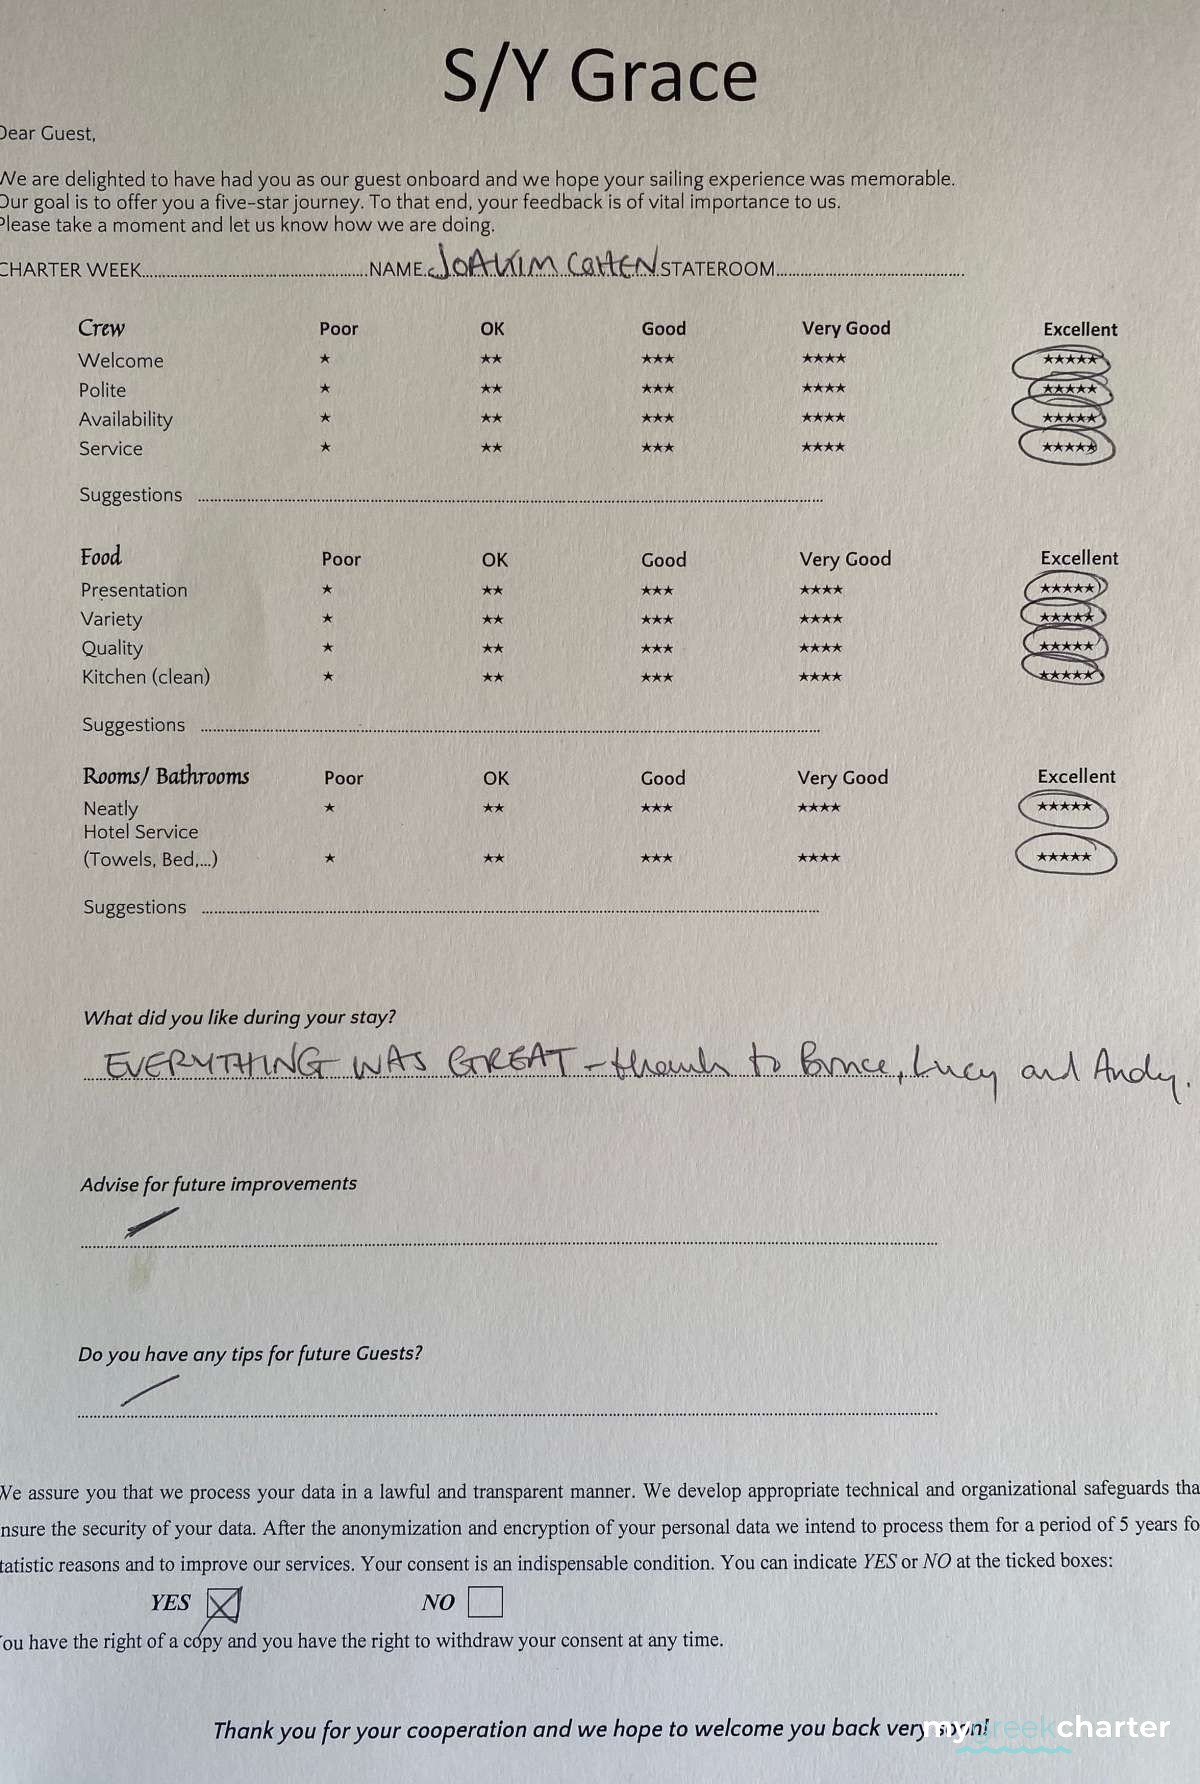 S/Y Grace
Dear Guest,
We are delighted to have had you as our guest onboard and we hope your sailing experience was memorable.
Our goal is to offer you a five-star journey. To that end, your feedback is of vital importance to us.
Please take a moment and let us know how we are doing.
CHARTER WEEK........................NAME JOAKIM COHEN STATEROOM........................
Crew Poor OK Good Very Good Excellent
Welcome ★ ★★ ★★★ ★★★★ ★★★★★
Polite ★ ★★ ★★★ ★★★★ ★★★★★
Availability ★ ★★ ★★★ ★★★★ ★★★★★
Service ★ ★★ ★★★ ★★★★ ★★★★★
Suggestions ........................
Food Poor OK Good Very Good Excellent
Presentation ★ ★★ ★★★ ★★★★ ★★★★★
Variety ★ ★★ ★★★ ★★★★ ★★★★★
Quality ★ ★★ ★★★ ★★★★ ★★★★★
Kitchen (clean) ★ ★★ ★★★ ★★★★ ★★★★★
Suggestions ........................
Rooms/ Bathrooms Poor OK Good Very Good Excellent
Neatly ★ ★★ ★★★ ★★★★ ★★★★★
Hotel Service
(Towels, Bed,...) ★ ★★ ★★★ ★★★★ ★★★★★
Suggestions ........................
What did you like during your stay?
EVERYTHING WAS GREAT - thanks to Bruce, Lucy and Andy.
Advise for future improvements
Do you have any tips for future Guests?
We assure you that we process your data in a lawful and transparent manner. We develop appropriate technical and organizational safeguards tha
nsure the security of your data. After the anonymization and encryption of your personal data we intend to process them for a period of 5 years fo
tatistic reasons and to improve our services. Your consent is an indispensable condition. You can indicate YES or NO at the ticked boxes:
YES NO
You have the right of a copy and you have the right to withdraw your consent at any time.
Thank you for your cooperation and we hope to welcome you back very soon!
mygreekcharter